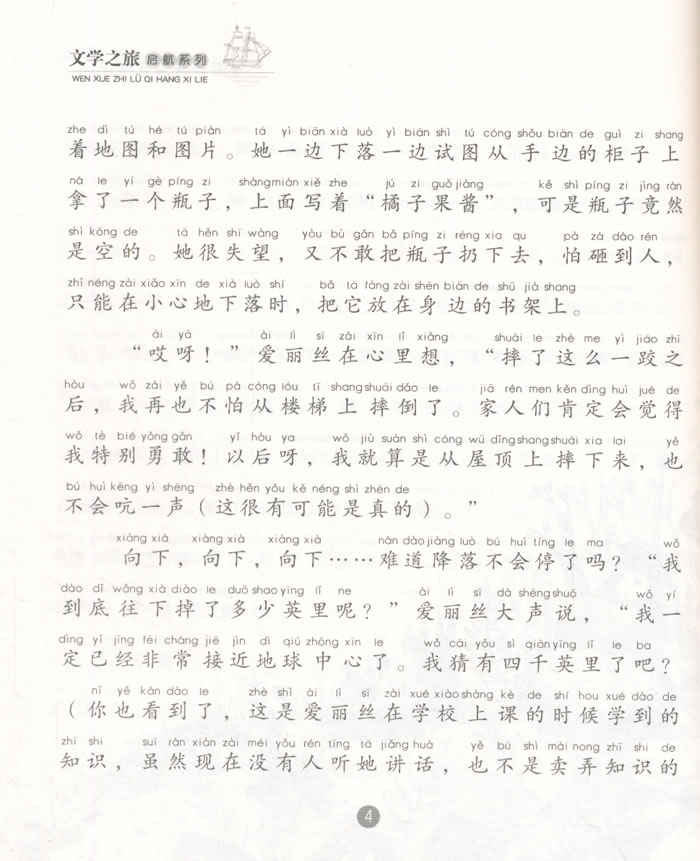 文学之旅 启航系列
WEN XUE ZHI LÜ QI HANG XI LIE
zhe dì tú hé tú piàn tā yì biān xià luò yì biān shì tú cóng shǒu biān de guì zi shang
着地图和图片。她一边下落一边试图从手边的柜子上
ná le yí gè píng zi shàng miàn xiě zhe jú zi guǒ jiàng kě shì píng zi jìng rán
拿了一个瓶子，上面写着“橘子果酱”，可是瓶子竟然
shì kōng de tā hěn shī wàng yòu bù gǎn bǎ píng zi rēng xia qu pà zá dào rén
是空的。她很失望，又不敢把瓶子扔下去，怕砸到人，
zhǐ néng zài xiǎo xīn de xià luò shí bǎ tā fàng zài shēn biān de shū jià shang
只能在小心地下落时，把它放在身边的书架上。
āi yā ài lì sī zài xīn lǐ xiǎng shuāi le zhè me yì jiāo zhī
“哎呀！”爱丽丝在心里想，“摔了这么一跤之
hòu wǒ zài yě bú pà cóng lóu tī shang shuāi dǎo le jiā rén men kěn dìng huì jué de
后，我再也不怕从楼梯上摔倒了。家人们肯定会觉得
wǒ tè bié yǒng gǎn yǐ hòu ya wǒ jiù suàn shì cóng wū dǐng shang shuāi xia lai yě
我特别勇敢！以后呀，我就算是从屋顶上摔下来，也
bú huì kēng yì shēng zhè hěn yǒu kě néng shì zhēn de
不会吭一声（这很有可能是真的）。”
xiàng xià xiàng xià xiàng xià nán dào jiàng luò bú huì tíng le ma wǒ
向下，向下，向下……难道降落不会停了吗？“我
dào dǐ wǎng xià diào le duō shao yīng lǐ ne ài lì sī dà shēng shuō wǒ yí
到底往下掉了多少英里呢？”爱丽丝大声说，“我一
dìng yǐ jīng fēi cháng jiē jìn dì qiú zhōng xīn le wǒ cāi yǒu sì qiān yīng lǐ le ba
定已经非常接近地球中心了。我猜有四千英里了吧？
nǐ yě kàn dào le zhè shì ài lì sī zài xué xiào shàng kè de shí hou xué dào de
（你也看到了，这是爱丽丝在学校上课的时候学到的
zhī shi suī rán xiàn zài méi yǒu rén tīng tā jiǎng huà yě bú shì mài nong zhī shi de
知识，虽然现在没有人听她讲话，也不是卖弄知识的
4